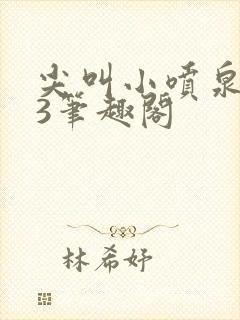 尖叫小喷泉
3笔趣阁
林希妤